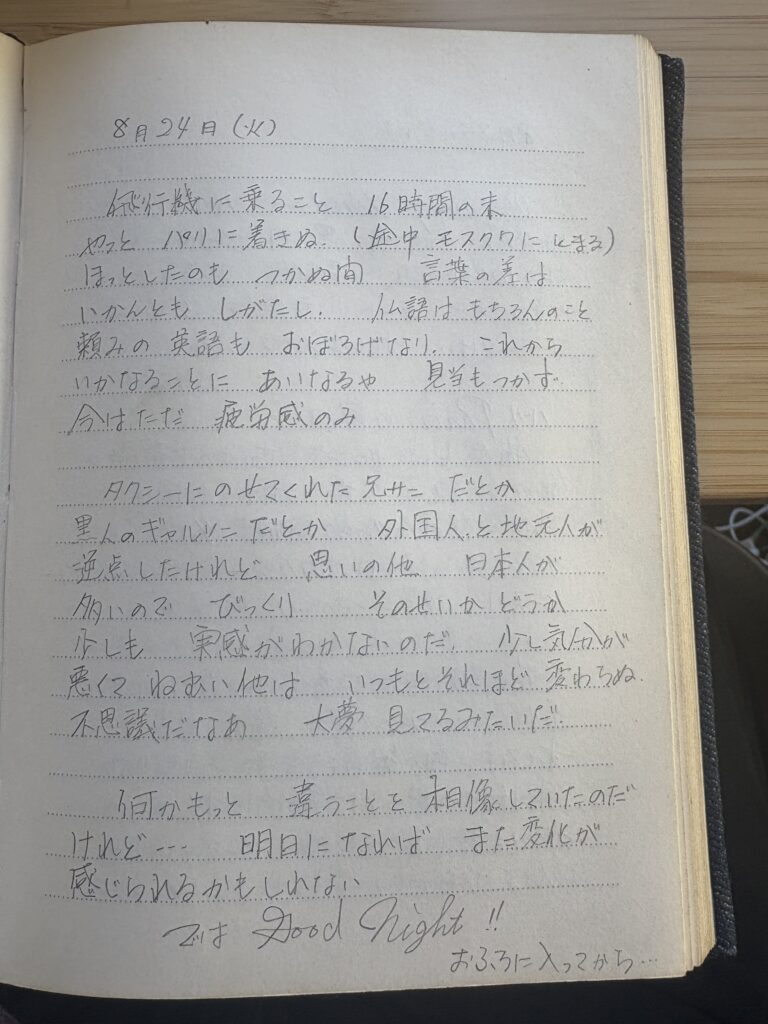 8月24日(火)
飛行機に乗ること 16時間の末
やっと パリに着きぬ. (途中 モスクワにとまる)
ほっとしたのも つかぬ間 言葉の差は
いかんとも しがたし. 仏語はもちろんのこと
頼みの 英語も おぼろげなり. これから
いかなることに あいなるや 見当もつかず.
今はただ 疲労感のみ
タクシーにのせてくれた兄サン だとか
黒人のギャルソン だとか 外国人と地元人が
逆点したけれど 思いの他 日本人が
多いので びっくり そのせいか どうか
少しも 実感がわかないのだ. 少し気分が
悪くて ねむい他は いつもとそれほど 変わらぬ.
不思議だなあ 大夢 見てるみたいだ.
何かもっと 違うことを 想像していたのだ
けれど--- 明日になれば また変化が
感じられるかもしれない
では Good Night !!
おふろに入ってから…